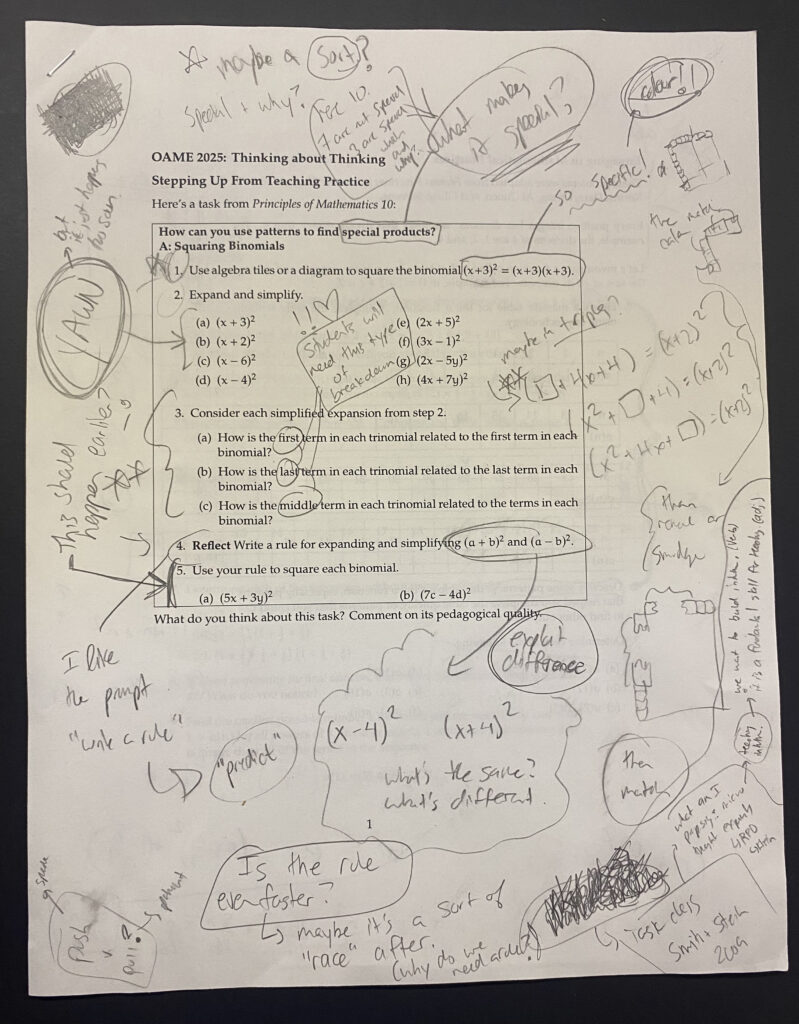 maybe a sort?
special + why?
here 10.
7 are not special
3 are special
which
and
why?
what makes
it special?
colour!!
OAME 2025: Thinking about Thinking
Stepping Up From Teaching Practice
Here's a task from Principles of Mathematics 10:
so specific!
How can you use patterns to find special products?
A: Squaring Binomials
1. Use algebra tiles or a diagram to square the binomial (x+3)² = (x+3)(x+3).
2. Expand and simplify.
(a) (x + 3)²
(b) (x + 2)²
(c) (x − 6)²
(d) (x − 4)²
(e) (2x + 5)²
(f) (3x − 1)²
(g) (2x − 5y)²
(h) (4x + 7y)²
YAWN
!!
Students will
need this type
of
breakdown
maybe a triple?
(□ + 4x + 4) = (x+2)²
(x² + □ + 4) = (x+2)²
(x² + 4x + □) = (x+2)²
3. Consider each simplified expansion from step 2.
(a) How is the first term in each trinomial related to the first term in each
binomial?
(b) How is the last term in each trinomial related to the last term in each
binomial?
(c) How is the middle term in each trinomial related to the terms in each
binomial?
This should
happen earlier?
then
or
smudge
4. Reflect Write a rule for expanding and simplifying (a + b)² and (a − b)².
5. Use your rule to square each binomial.
(a) (5x + 3y)²
(b) (7c − 4d)²
What do you think about this task? Comment on its pedagogical quality.
explicit
difference
I like
the prompt
"write a rule"
"predict"
(x−4)²
(x+4)²
what's the same?
what's different.
then
match
1
Is the rule
even faster?
maybe it's a sort of
"race" after.
(why do we
need a rule?)
push
v.
pull?
Task class
Smith + Stein